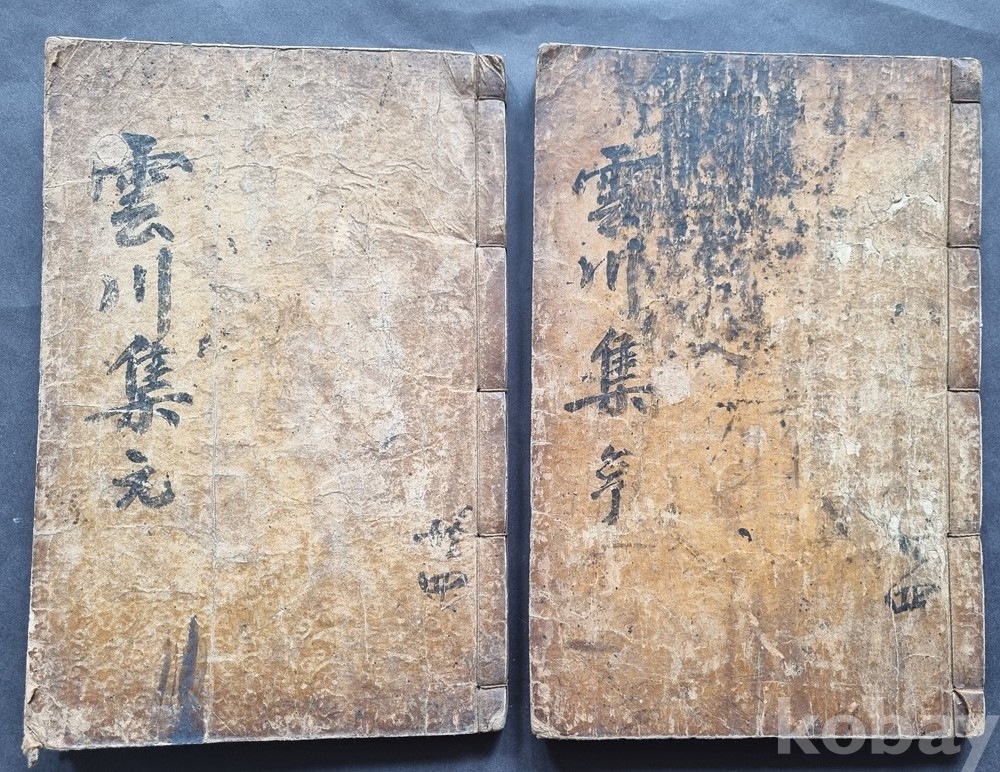 雲川集 元
四
雲川集 亨
四
kobay